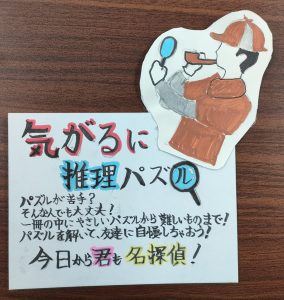 気がるに
推理パズル
パズルが苦手?
そんな人でも大丈夫!
一冊の中にやさしいパズルから難しいものまで!
パズルを解いて、友達に自慢しちゃおう!
今日から君も名探偵!